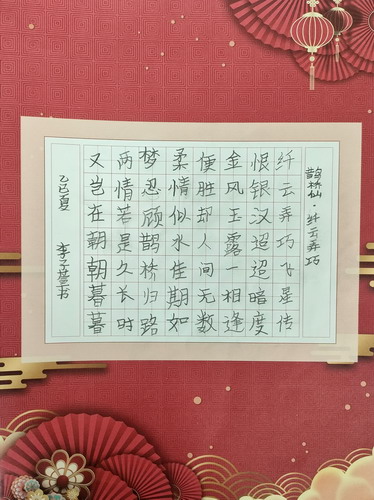 鹊桥仙·纤云弄巧
纤云弄巧飞星传
恨银汉迢迢暗度
金风玉露一相逢
便胜却人间无数
柔情似水佳期如
梦忍顾鹊桥归路
两情若是久长时
又岂在朝朝暮暮
乙巳夏 李萱书